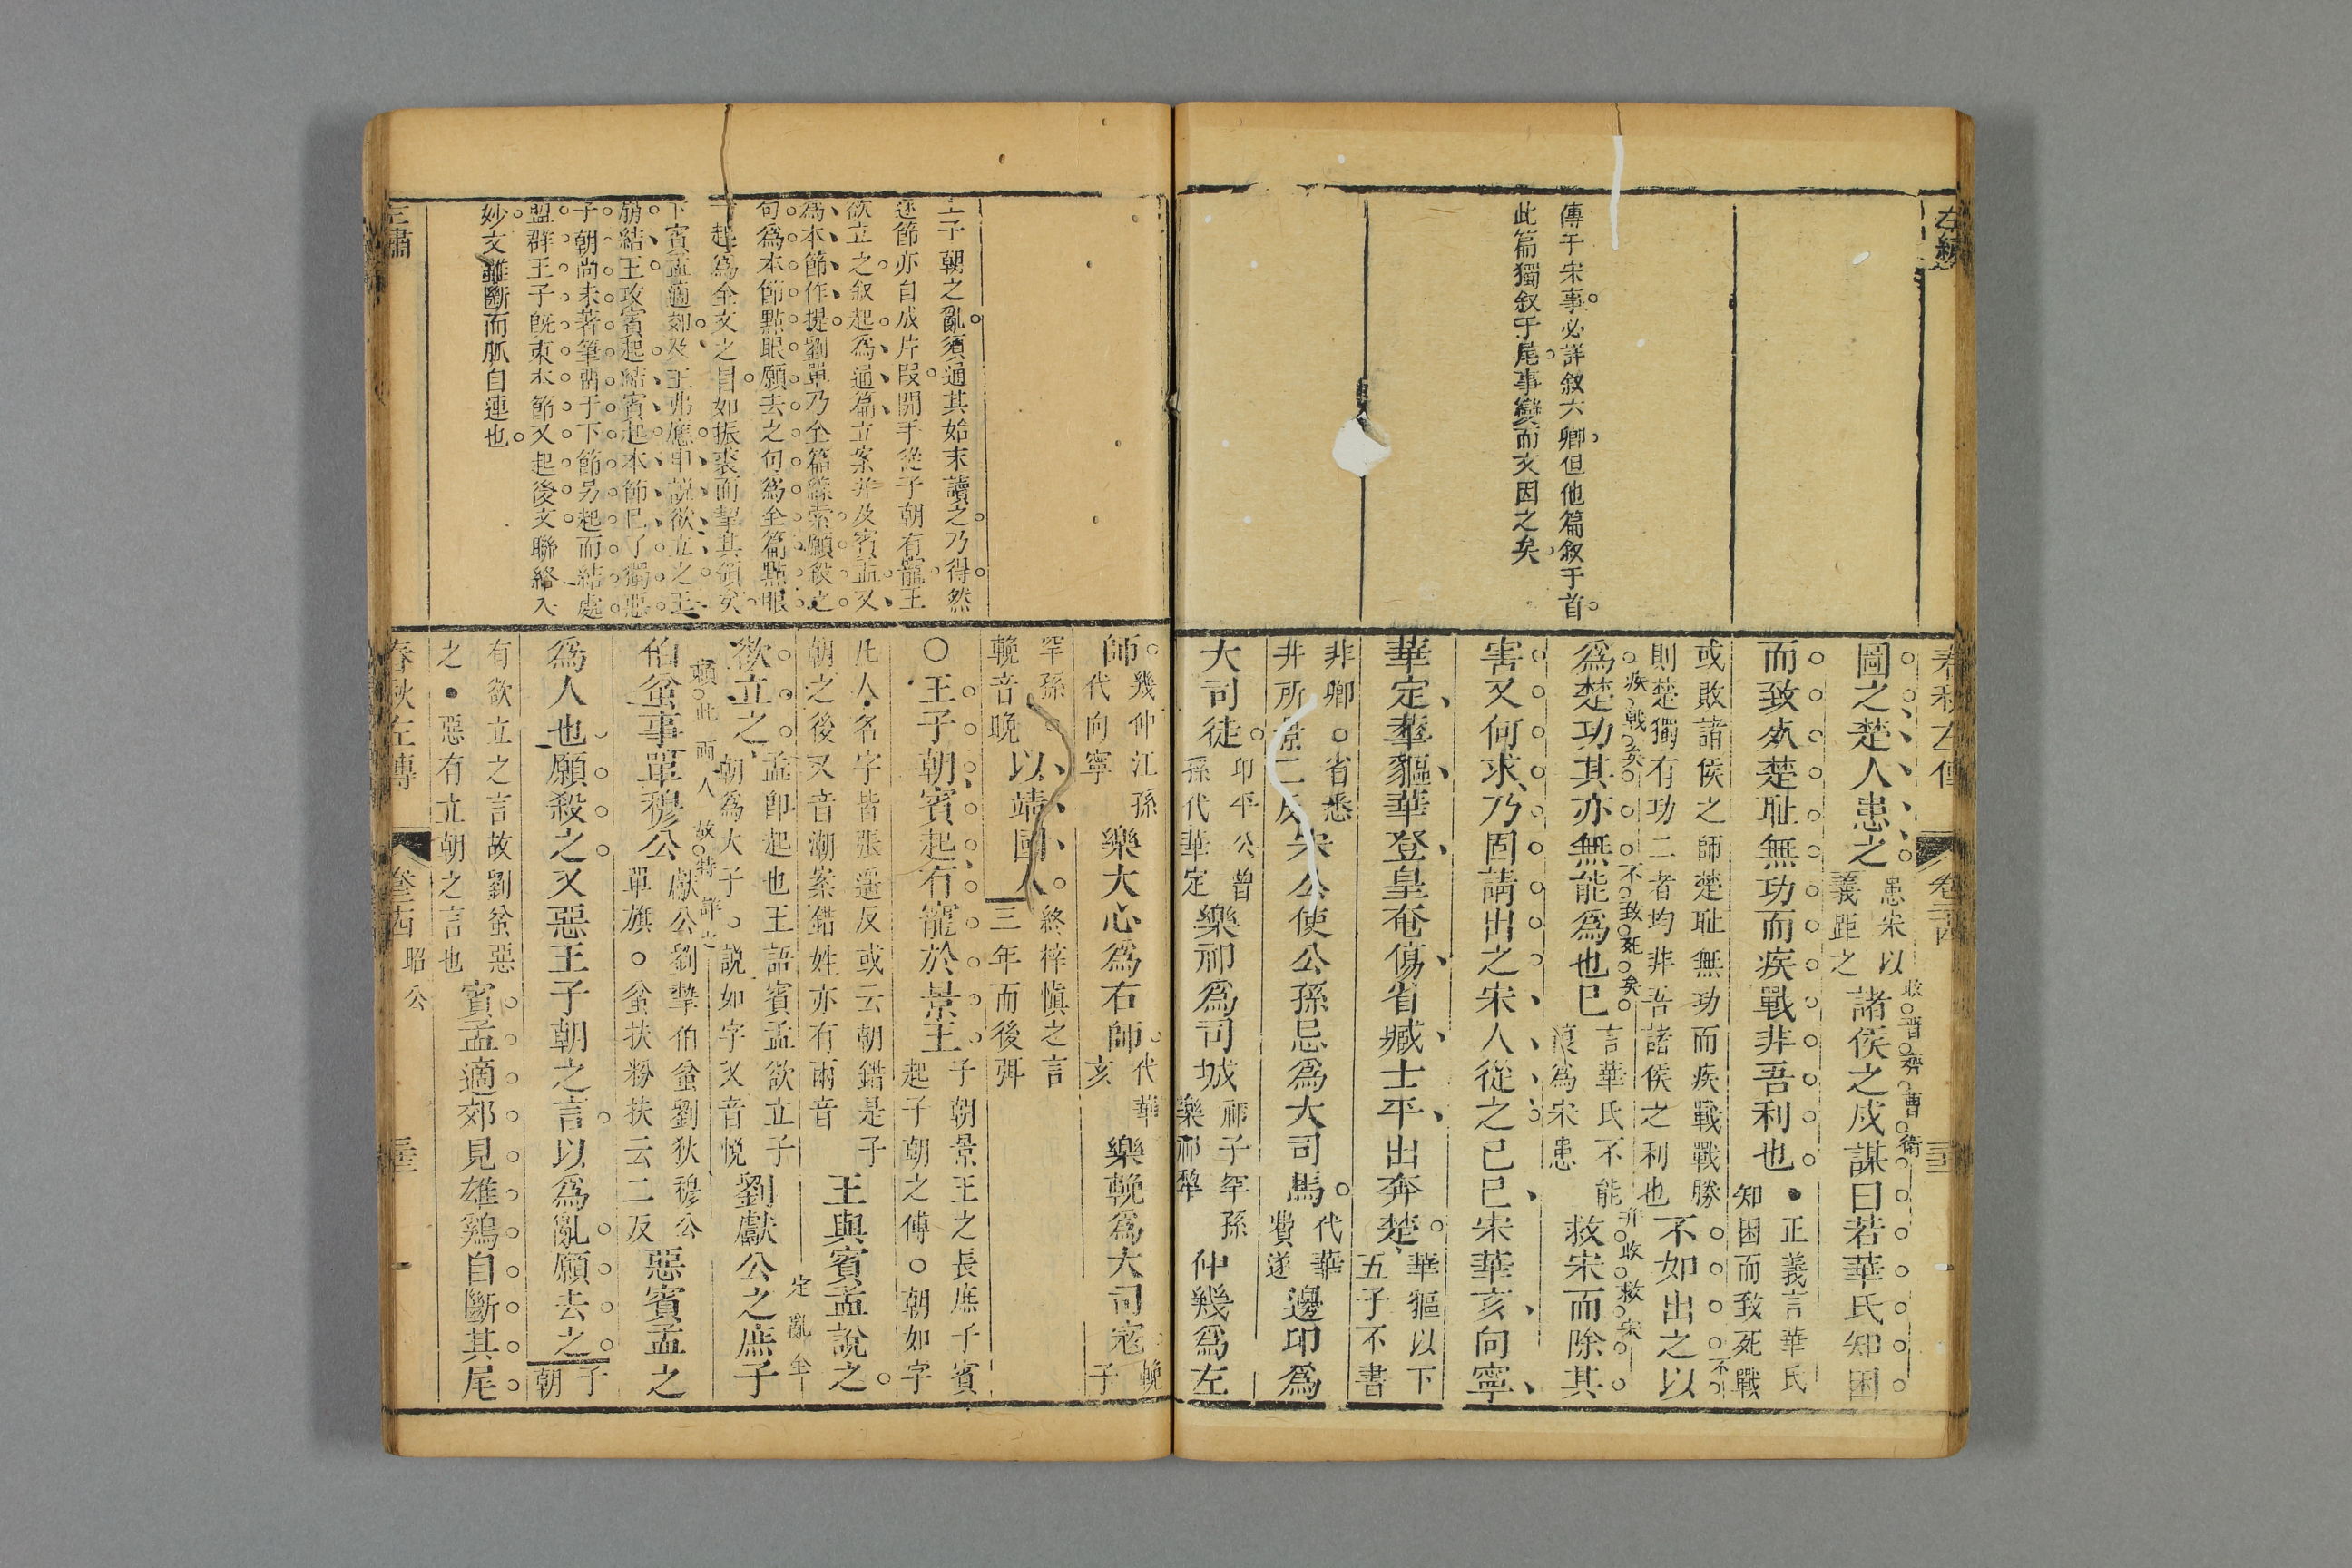 左繡
傳于宋事必詳敘六卿但他篇敘于首
此篇獨敘于尾事變而文因之矣
春秋左傳
卷二十四
圖之楚人患之
患宋以
義距之
諸侯之戍謀曰若華氏知困
收晉齊曹衛
而致死楚恥無功而疾戰非吾利也
正義言華氏
知困而致死戰
或敗諸侯之師楚恥無功而疾戰戰勝
則楚獨有功二者均非吾諸侯之利也
不如出之以
為楚功其亦無能為也已
疾戰矣
不致死矣
言華氏不能
復為宋患
救宋而除其
并收救宋
害又何求乃固請出之宋人從之己巳宋華亥向寧
華定華貙華登皇奄傷省臧士平出奔楚
華貙以下
五子不書
非卿○省悉
井所景二反
宋公使公孫忌為大司馬
代華
費遂
邊卬為
大司徒
卬平公曾
孫代華定
樂祁為司城
祁子罕孫
樂祁犂
仲幾為左
師
幾仲江孫
代向寧
樂大心為右師
代華
亥
樂輓為大司寇
輓子
罕孫
輓音晚
以靖國人
終梓慎之言
三年而後弭
王子朝之亂須通其始末讀之乃得然
逐節亦自成片段開手從子朝有寵王
欲立之敘起為通篇立案并及賓孟又
為本節作提劉單乃全篇線索願殺之
句為本節點眼願去之句為全篇點眼
一起為全文之冒如振裘而挈其領矣
下賓孟適郊及王弗應申說欲立之王
崩結王攻賓起結賓起本節已了獨惡
子朝尚未著筆留于下節另起而結處
盟群王子既束本節又起後文聯絡入
妙文雖斷而脈自連也
○王子朝賓起有寵於景王
子朝景王之長庶子賓
起子朝之傅○朝如字
凡人名字皆張遙反或云朝錯是子
朝之後又音潮案錯姓亦有兩音
王與賓孟說之
定亂全
欲立之
孟即起也王語賓孟欲立子
朝為大子○說如字又音悅
劉獻公之庶子
顧此兩人故特詳之
伯蚠事單穆公
獻公劉摯伯蚠劉狄穆公
單旗○蚠扶粉扶云二反
惡賓孟之
為人也願殺之又惡王子朝之言以為亂願去之
子朝
有欲立之言故劉蚠惡
之●惡有立朝之言也
賓孟適郊見雄鷄自斷其尾
春秋左傳
昭公